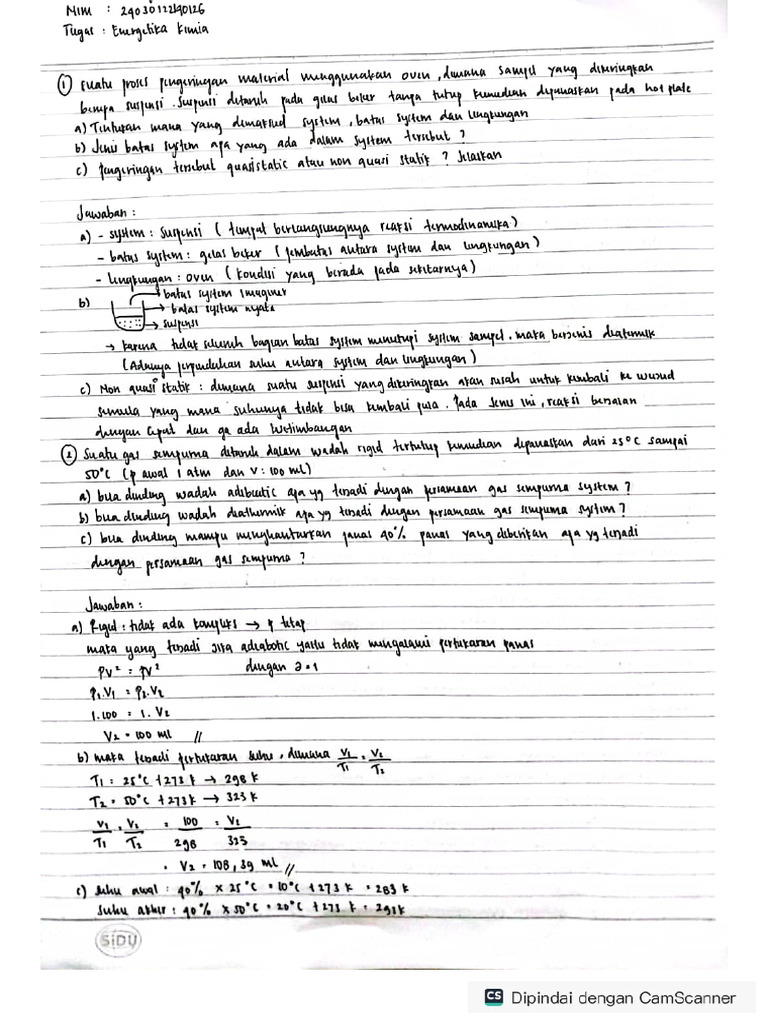 NIM : 24030122140126
Tugas : Energetika Kimia
① Suatu proses pengeringan material menggunakan oven, dimana sampel yang dikeringkan
berupa suspensi. Suspensi ditaruh pada gelas beker tanpa tutup kemudian dipanaskan pada hot plate
a) Tentukan mana yang dimaksud system, batas system dan lingkungan
b) Jenis batas system apa yang ada dalam system tersebut ?
c) Pengeringan tersebut quasistatic atau non quasi statik ? Jelaskan
Jawaban :
a) - system : Suspensi ( tempat berlangsungnya reaksi termodinamika )
- batas system : gelas beker ( pembatas antara system dan lingkungan )
- lingkungan : oven ( kondisi yang berada pada sekitarnya )
b) batas system imaginer
→ batas system nyata
→ suspensi
→ karena tidak seluruh bagian batas system menutupi system sampel. maka berjenis diatermik
( Adanya perpindahan suhu antara system dan lingkungan )
c) Non quasi statik : dimana suatu suspensi yang dikeringkan akan susah untuk kembali ke wujud
semula yang mana suhunya tidak bisa kembali juga. Pada jenis ini, reaksi berjalan
dengan cepat dan ga ada kesetimbangan
② Suatu gas sempurna ditaruh dalam wadah rigid tertutup kemudian dipanaskan dari 25°C sampai
50°C ( p awal 1 atm dan V : 100 ml )
a) bila dinding wadah adibatic apa yg terjadi dengan persamaan gas sempurna system ?
b) bila dinding wadah diathermik apa yg terjadi dengan persamaan gas sempurna system ?
c) bila dinding mampu menghantarkan panas 40% panas yang diberikan apa yg terjadi
dengan persamaan gas sempurna ?
Jawaban :
a) Rigid : tidak ada kompresi → p tetap
maka yang terjadi jika adiabatic yaitu tidak mengalami pertukaran panas
PV² = PV² dengan a = 1
P₁.V₁ = P₂.V₂
1.100 = 1. V₂
V₂ = 100 ml //
b) maka terjadi pertukaran suhu, dimana V₁/T₁ = V₂/T₂
T₁ = 25°C + 273 K → 298 K
T₂ = 50°C + 273 K → 323 K
V₁/T₁ = V₂/T₂ = 100/298 = V₂/323
= V₂ = 108,39 ml //
c) Suhu awal : 40% x 25°C = 10°C + 273 K = 283 K
Suhu akhir : 40% x 50°C = 20°C + 273 K = 293 K
SiDU
CS Dipindai dengan CamScanner